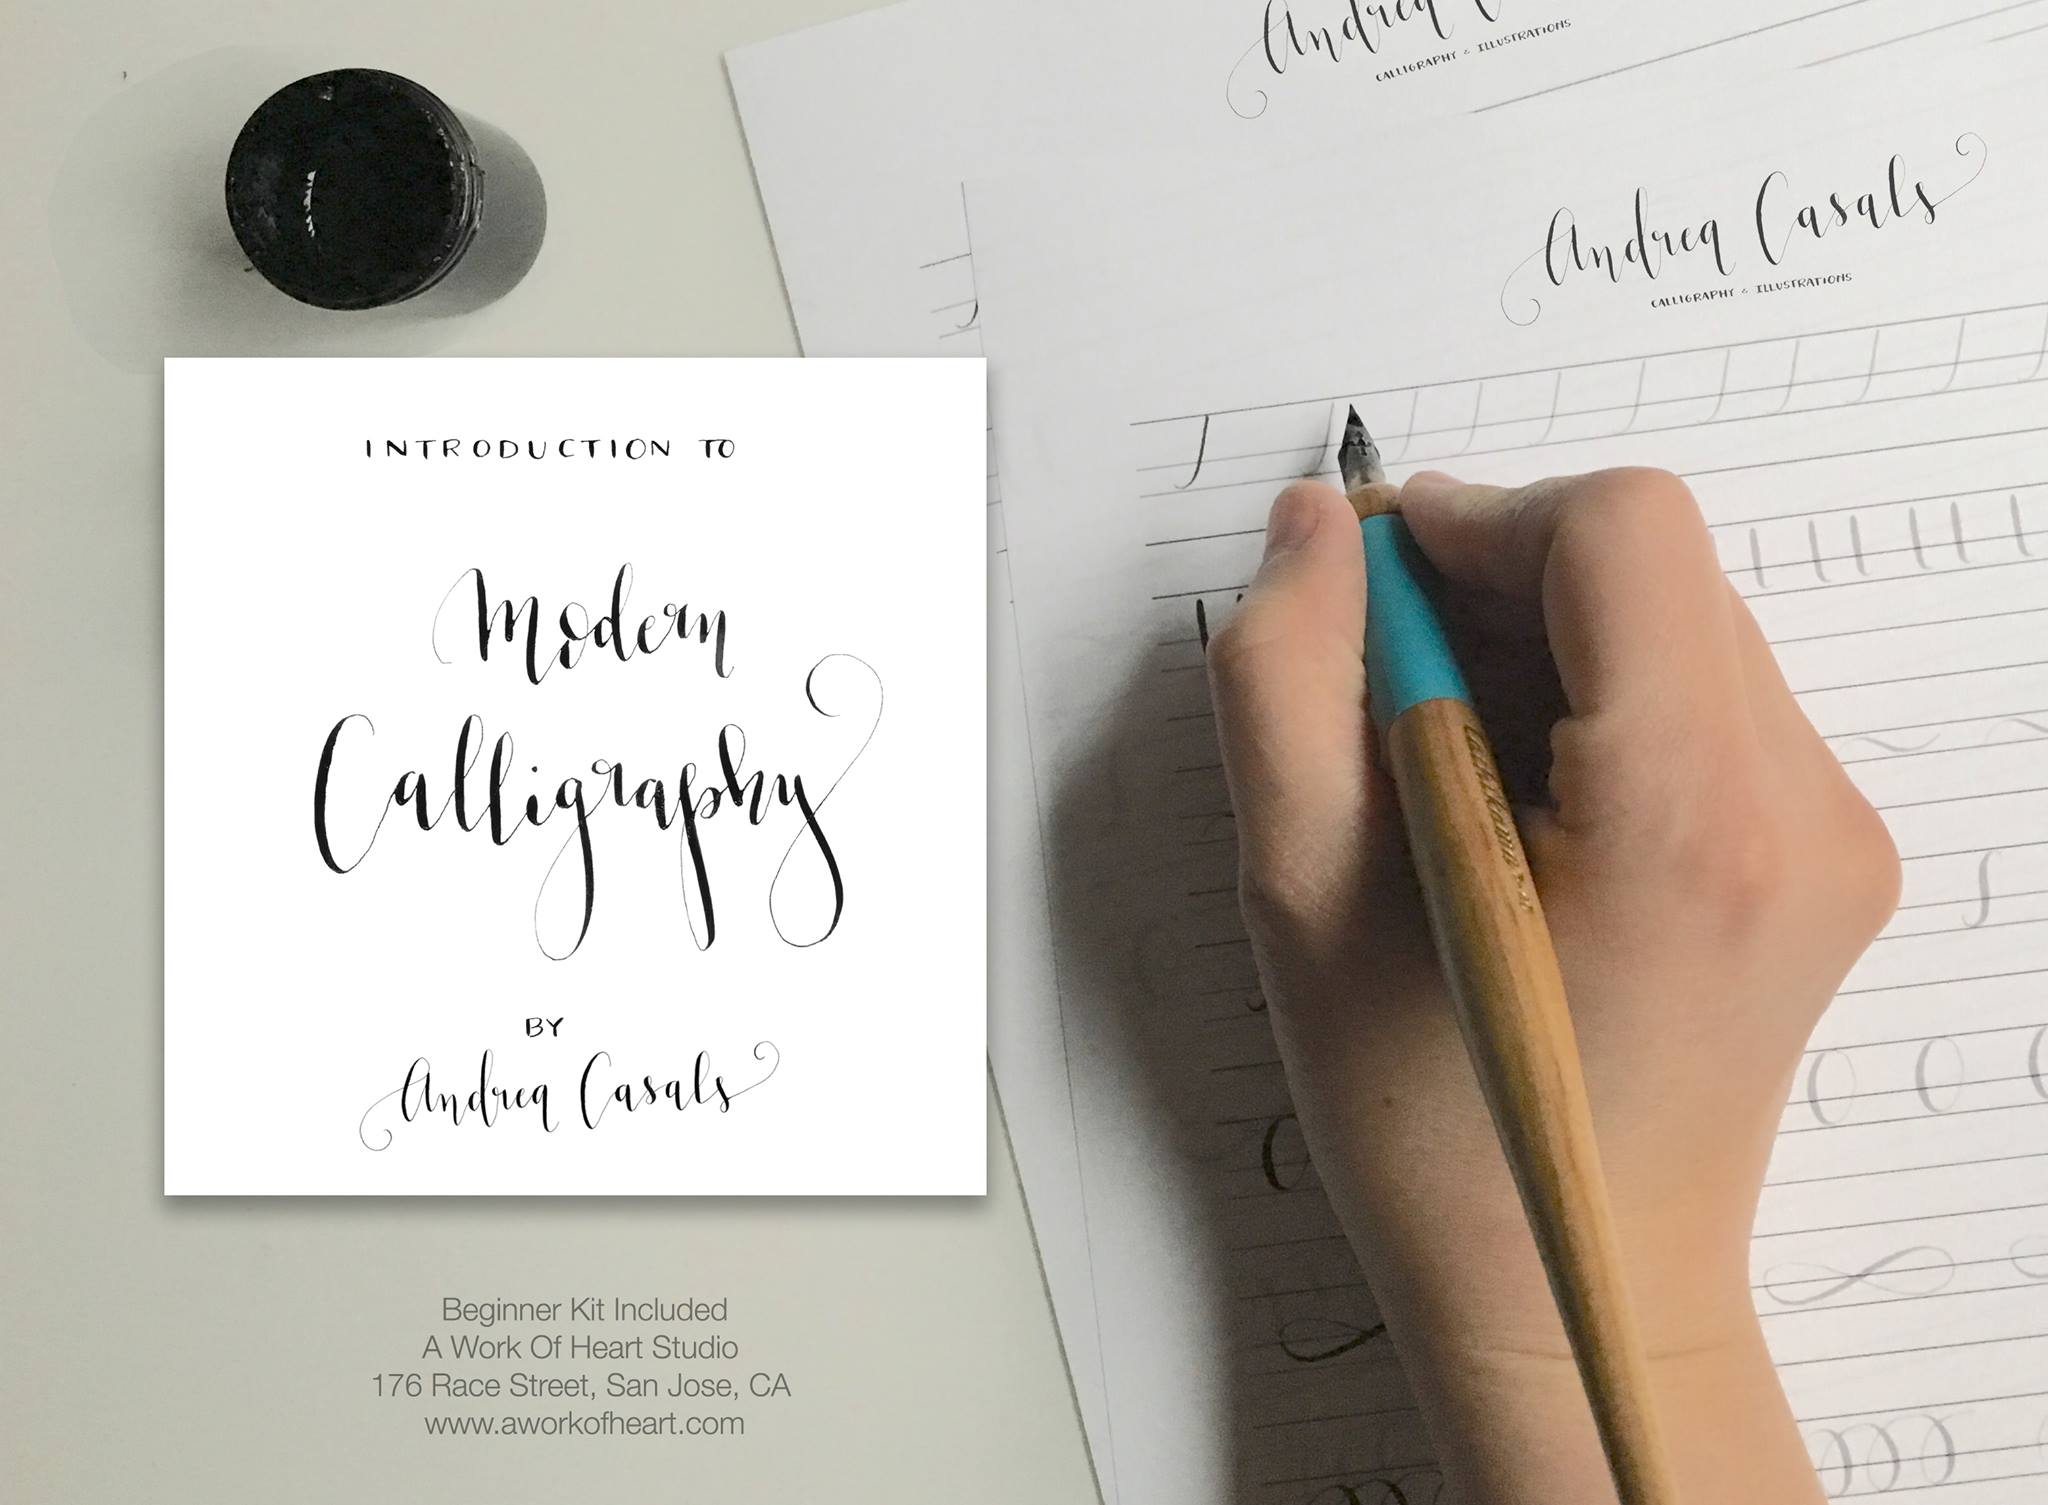 INTRODUCTION TO
Modern
Calligraphy
BY
Andrea Casals
Beginner Kit Included
A Work Of Heart Studio
176 Race Street, San Jose, CA
www.aworkofheart.com
Andrea
CALLIGRAPHY & ILLUSTRATIONS
Andrea Casals
CALLIGRAPHY & ILLUSTRATIONS